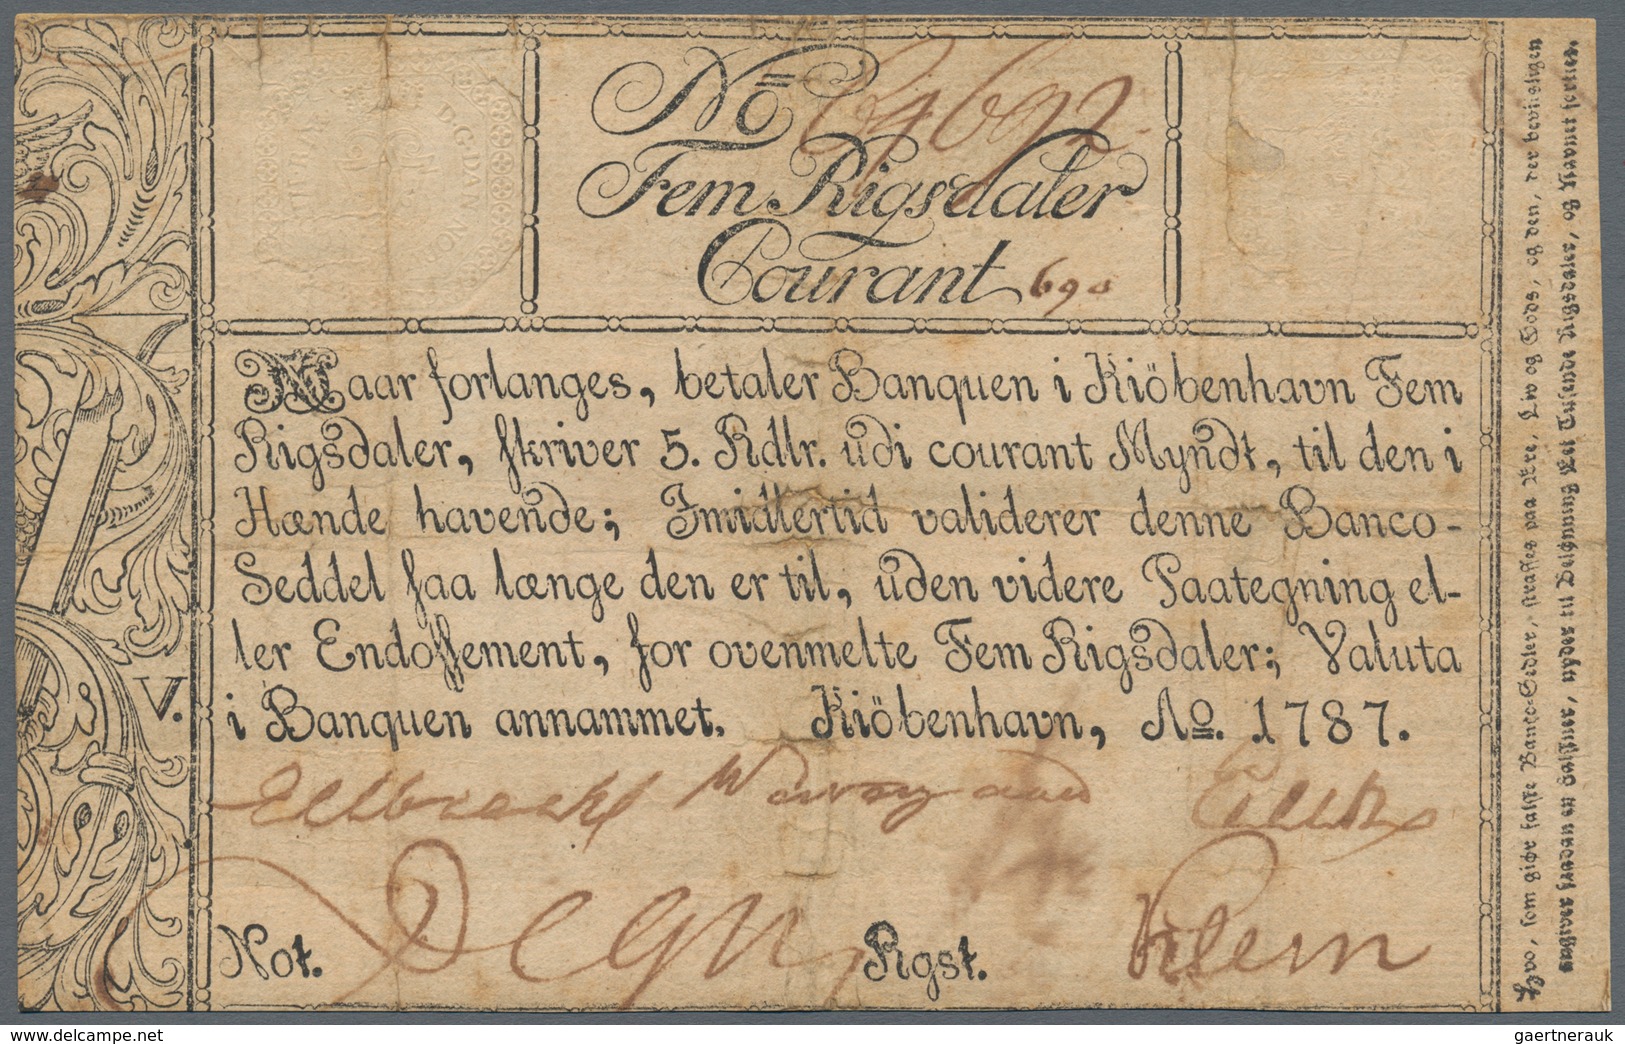 No
Fem Rigsdaler
Courant 690
Naar forlanges, betaler Banquen i Kiöbenhavn Fem
Rigsdaler, skriver 5. Rdlr. udi courant Myndt, til den i
Hænde havende; Imidlertid validerer denne Banco-
Seddel saa længe den er til, uden videre Paategning el-
ler Endossement, for ovenmelte Fem Rigsdaler; Valuta
i Banquen annammet. Kiöbenhavn, Ao. 1787.
V.
Not.
Rgst. Klem
Hvo, som giør falske Banco-Sedler, straffes paa Ære, Liv og Gods, og den, der beviisligen
angiver saadan en Falskner, nyder
www.delcampe.net
gaertnerauk